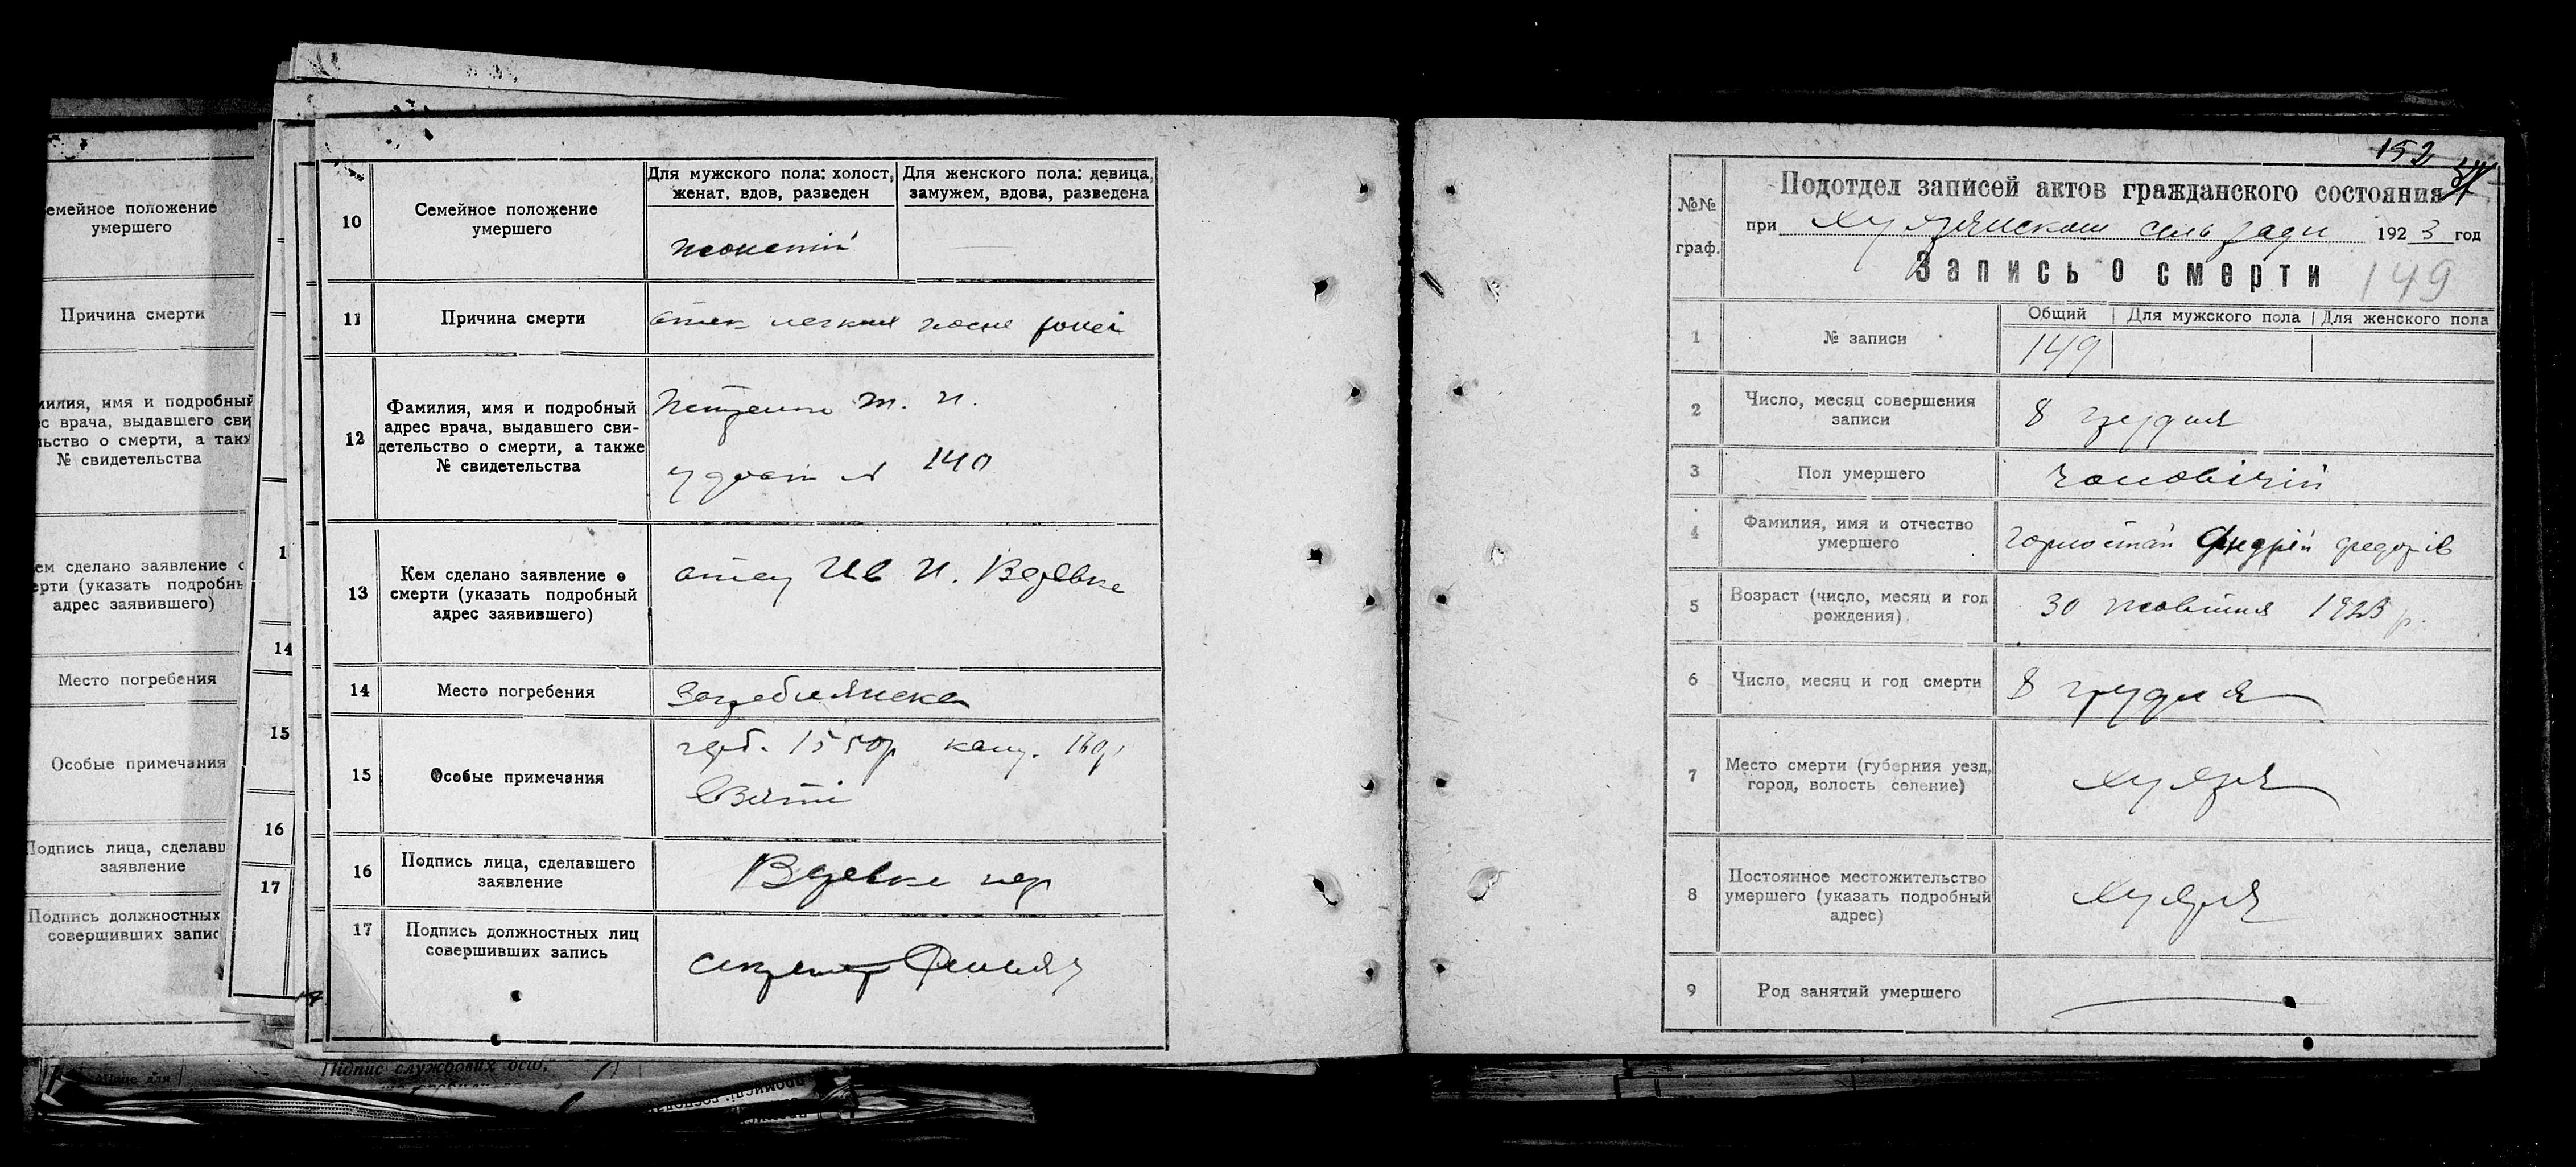 емейное положение
умершего
Причина смерти
милия, имя и подробный
с врача, выдавшего сви
льство о смерти, а такж
№ свидетельства
ем сделано заявление о
ерти (указать подробнь
адрес заявившего)
Место погребения
Особые примечания
Подпись лица, сделавш
заявление
Подпись должностных
совершивших запис
1
14
15
16
17
10
Семейное положение
умершего
Для мужского пола: холост,
женат, вдов, разведен
Для женского пола: девица,
замужем, вдова, разведена
11
Причина смерти
отек легких после
12
Фамилия, имя и подробный
адрес врача, выдавшего сви-
детельство о смерти, а также
№ свидетельства
140
13
Кем сделано заявление о
смерти (указать подробный
адрес заявившего)
отец Ив И.
14
Место погребения
15
Особые примечания
герб. 1550р канц.
взяті
16
Подпись лица, сделавшего
заявление
17
Подпись должностных лиц
совершивших запись
секретар
Підпис службових осіб,
152
№№
граф.
Подотдел записей актов гражданского состояния
при сель ради 1923 год
Запись о смерти 149
1
№ записи
Общий Для мужского пола Для женского пола
149
2
Число, месяц совершения
записи
8 грудня
3
Пол умершего
чоловічій
4
Фамилия, имя и отчество
умершего
Горностай Андрей Федорів
5
Возраст (число, месяц и год
рождения)
30 жовтня 1923 р.
6
Число, месяц и год смерти
8 грудня
7
Место смерти (губерния уезд,
город, волость селение)
8
Постоянное местожительство
умершего (указать подробный
адрес)
9
Род занятий умершего